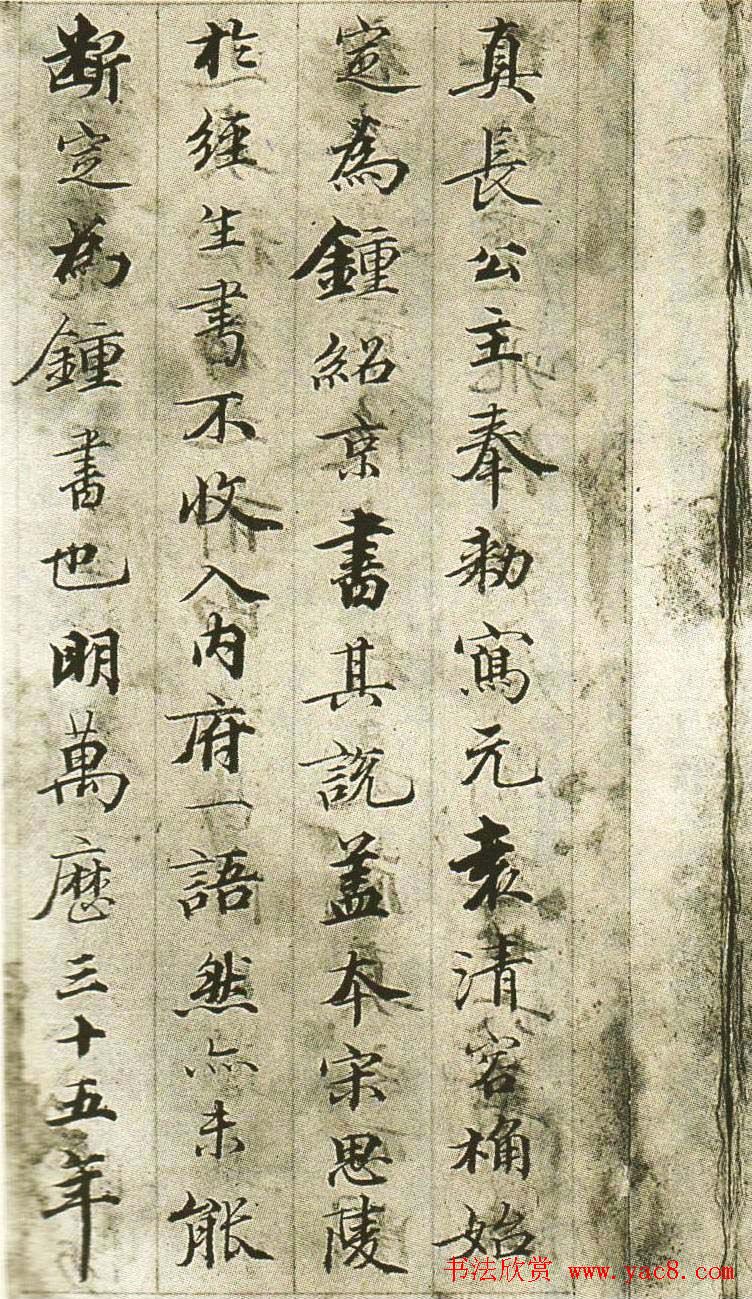 真長公主奉勑寫元袁清容桷始
定為鍾紹京書其說盖本宋思陵
於經生書不收入内府一語然亦未能
斷定為鍾書也明萬曆三十五年
书法欣赏 www.yac8.com